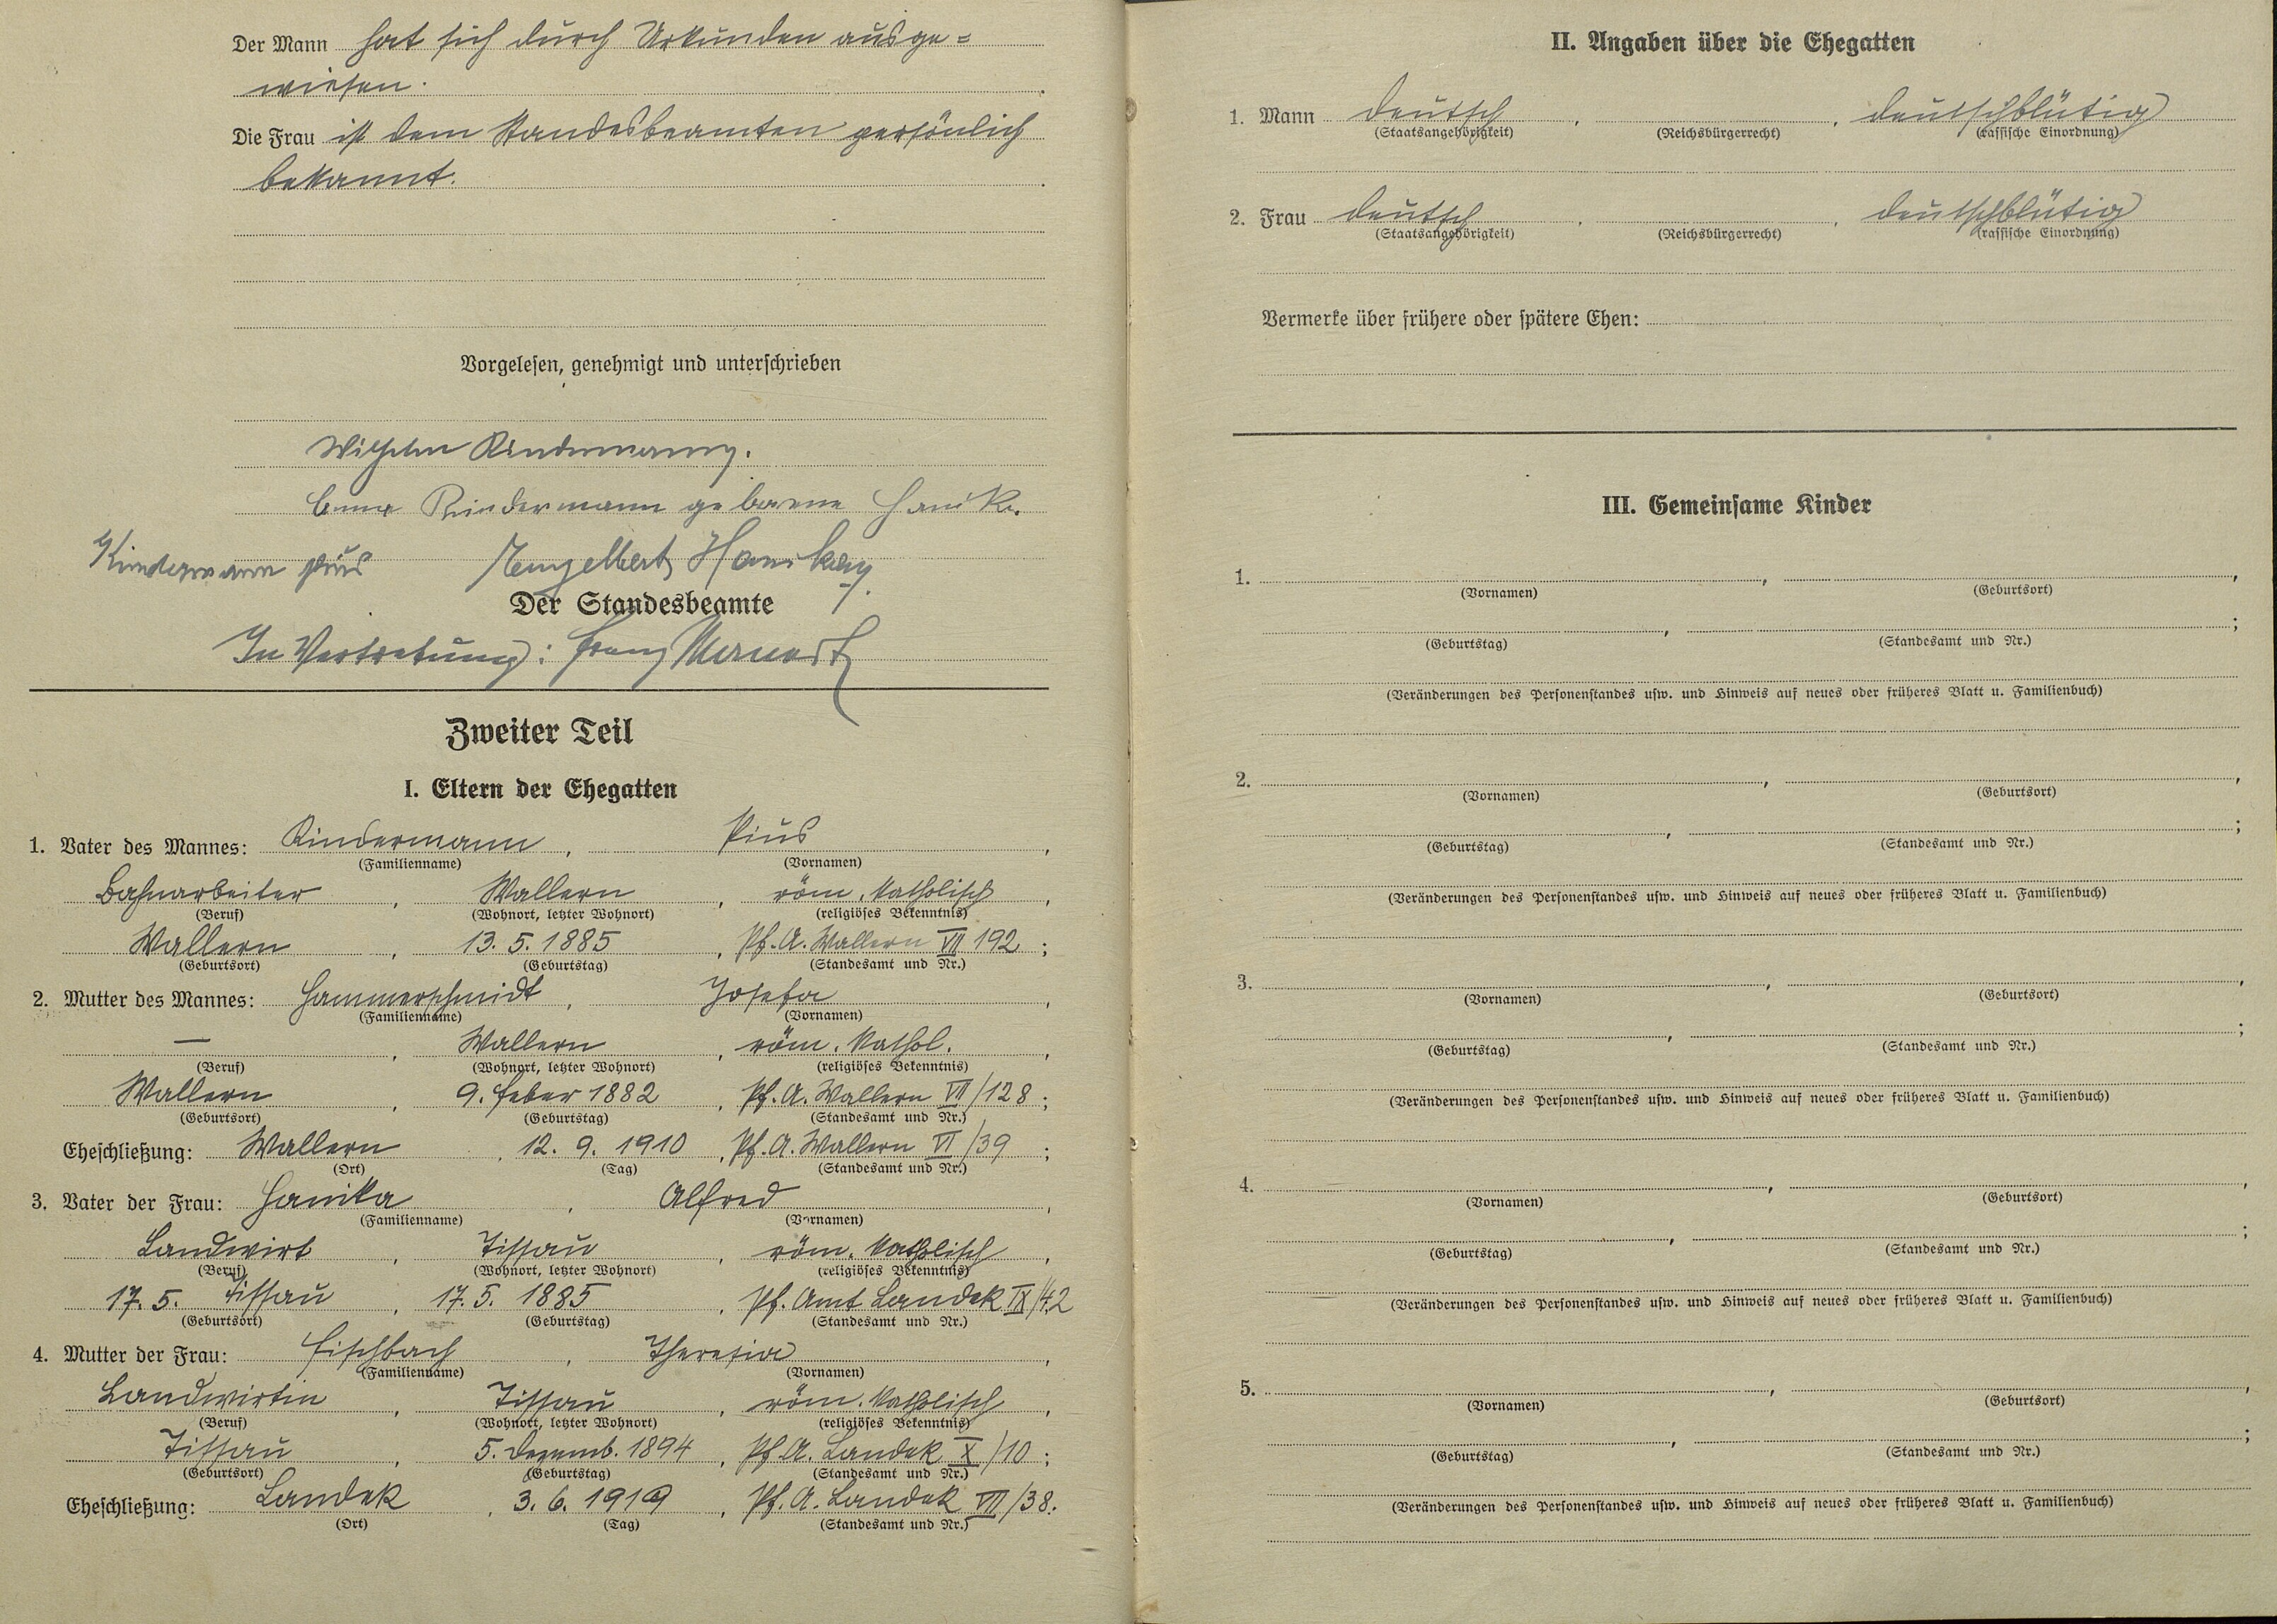 Der Mann hat sich durch Urkunden ausge=
wiesen.
Die Frau ist dem Standesbeamten persönlich
bekannt.
Vorgelesen, genehmigt und unterschrieben
Wilhelm Kindermann.
Kindermann geborene Hanika.
Kindermann Pius Engelbert Hanika
Der Standesbeamte
In Vertretung: Franz
Zweiter Teil
I. Eltern der Ehegatten
1. Vater des Mannes: Kindermann, Pius,
(Familienname) (Vornamen)
Bahnarbeiter, Wallern, röm. katholisch,
(Beruf) (Wohnort, letzter Wohnort) (religiöses Bekenntnis)
Wallern, 13. 5. 1885, Pf. A. Wallern VII 192;
(Geburtsort) (Geburtstag) (Standesamt und Nr.)
2. Mutter des Mannes: Hammerschmidt, Josefa,
(Familienname) (Vornamen)
—, Wallern, röm. kathol.,
(Beruf) (Wohnort, letzter Wohnort) (religiöses Bekenntnis)
Wallern, 9. Feber 1882, Pf. A. Wallern VII/128;
(Geburtsort) (Geburtstag) (Standesamt und Nr.)
Eheschließung: Wallern, 12. 9. 1910, Pf. A. Wallern VI/39;
(Ort) (Tag) (Standesamt und Nr.)
3. Vater der Frau: Hanika, Alfred,
(Familienname) (Vornamen)
Landwirt, Tissau, röm. katholisch,
(Beruf) (Wohnort, letzter Wohnort) (religiöses Bekenntnis)
17. 5. Tissau, 17. 5. 1885, Pf. Amt Landek IX/42
(Geburtsort) (Geburtstag) (Standesamt und Nr.)
4. Mutter der Frau: Fischbach, Theresia,
(Familienname) (Vornamen)
Landwirtin, Tissau, röm. katholisch,
(Beruf) (Wohnort, letzter Wohnort) (religiöses Bekenntnis)
Tissau, 5. Dezemb. 1894, Pf. A. Landek X/10;
(Geburtsort) (Geburtstag) (Standesamt und Nr.)
Eheschließung: Landek, 3. 6. 1919, Pf. A. Landek VII/38.
(Ort) (Tag) (Standesamt und Nr.)
II. Angaben über die Ehegatten
1. Mann deutsch, , deutschblütig
(Staatsangehörigkeit) (Reichsbürgerrecht) (rassische Einordnung)
2. Frau deutsch, , deutschblütig
(Staatsangehörigkeit) (Reichsbürgerrecht) (rassische Einordnung)
Vermerke über frühere oder spätere Ehen:
III. Gemeinsame Kinder
1. , ,
(Vornamen) (Geburtsort)
, ;
(Geburtstag) (Standesamt und Nr.)
(Veränderungen des Personenstandes usw. und Hinweis auf neues oder früheres Blatt u. Familienbuch)
2. , ,
(Vornamen) (Geburtsort)
, ;
(Geburtstag) (Standesamt und Nr.)
(Veränderungen des Personenstandes usw. und Hinweis auf neues oder früheres Blatt u. Familienbuch)
3. , ,
(Vornamen) (Geburtsort)
, ;
(Geburtstag) (Standesamt und Nr.)
(Veränderungen des Personenstandes usw. und Hinweis auf neues oder früheres Blatt u. Familienbuch)
4. , ,
(Vornamen) (Geburtsort)
, ;
(Geburtstag) (Standesamt und Nr.)
(Veränderungen des Personenstandes usw. und Hinweis auf neues oder früheres Blatt u. Familienbuch)
5. , ,
(Vornamen) (Geburtsort)
, ;
(Geburtstag) (Standesamt und Nr.)
(Veränderungen des Personenstandes usw. und Hinweis auf neues oder früheres Blatt u. Familienbuch)